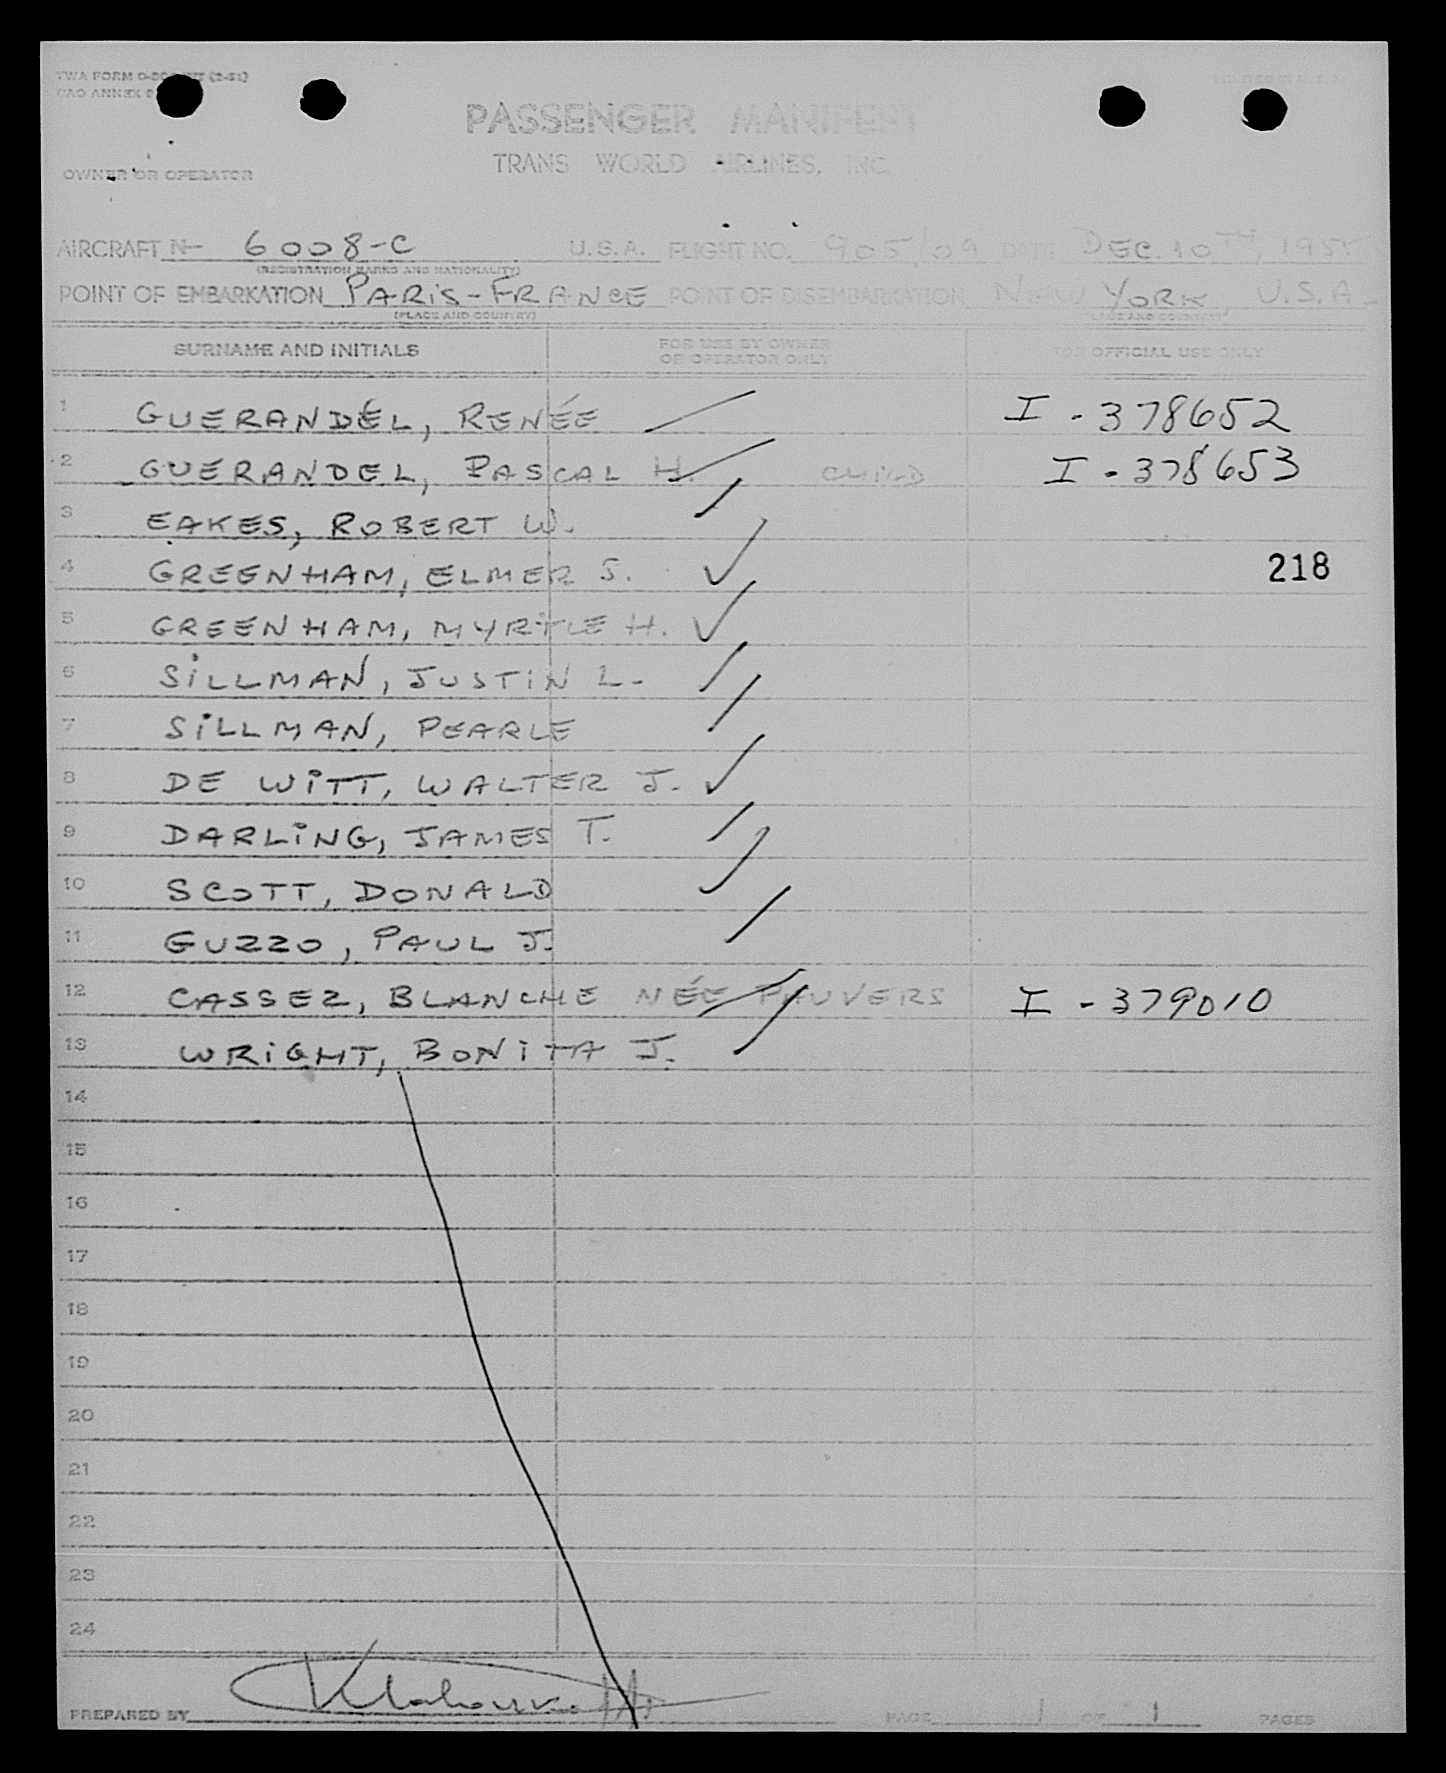 TWA FORM (2-51)
ICAO ANNEX 9
PASSENGER MANIFEST
TRANS WORLD AIRLINES, INC.
OWNER OR OPERATOR
AIRCRAFT N- 6008-C U.S.A. FLIGHT NO. 905/09 DATE DEC. 10TH, 1955
(REGISTRATION MARKS AND NATIONALITY)
POINT OF EMBARKATION PARIS-FRANCE POINT OF DISEMBARKATION NEW YORK, U.S.A-
(PLACE AND COUNTRY) (PLACE AND COUNTRY)
SURNAME AND INITIALS FOR USE BY OWNER OR OPERATOR ONLY FOR OFFICIAL USE ONLY
1 GUERANDÉL, RENÉE I - 378652
2 GUERANDEL, PASCAL H. CHILD I - 378653
3 EAKES, ROBERT W.
4 GREENHAM, ELMER S. 218
5 GREENHAM, MYRTLE H.
6 SILLMAN, JUSTIN L.
7 SILLMAN, PEARLE
8 DE WITT, WALTER J.
9 DARLING, JAMES T.
10 SCOTT, DONALD
11 GUZZO, PAUL J.
12 CASSEZ, BLANCHE NÉE PAUVERS I - 379010
13 WRIGHT, BONITA J.
14
15
16
17
18
19
20
21
22
23
24
PREPARED BY PAGE 1 OF 1 PAGES